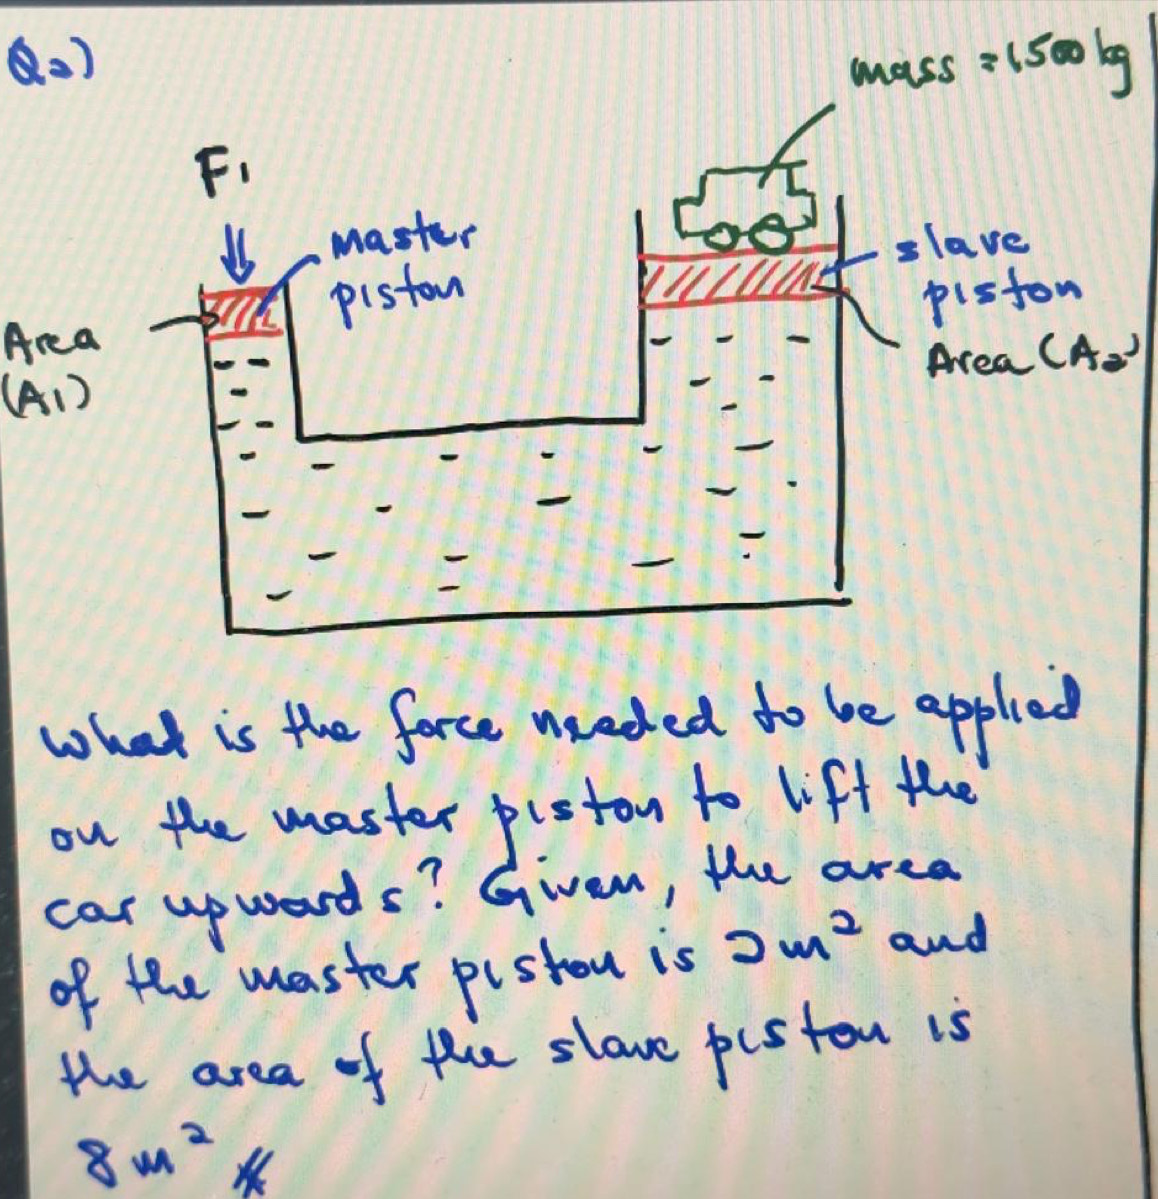 Q2)
mass = 1500 kg
F1
master
piston
slave
piston
Area
(A1)
Area (A2)
What is the force needed to be applied
on the master piston to lift the
car upwards? Given, the area
of the master piston is 2m² and
the area of the slave piston is
8m²